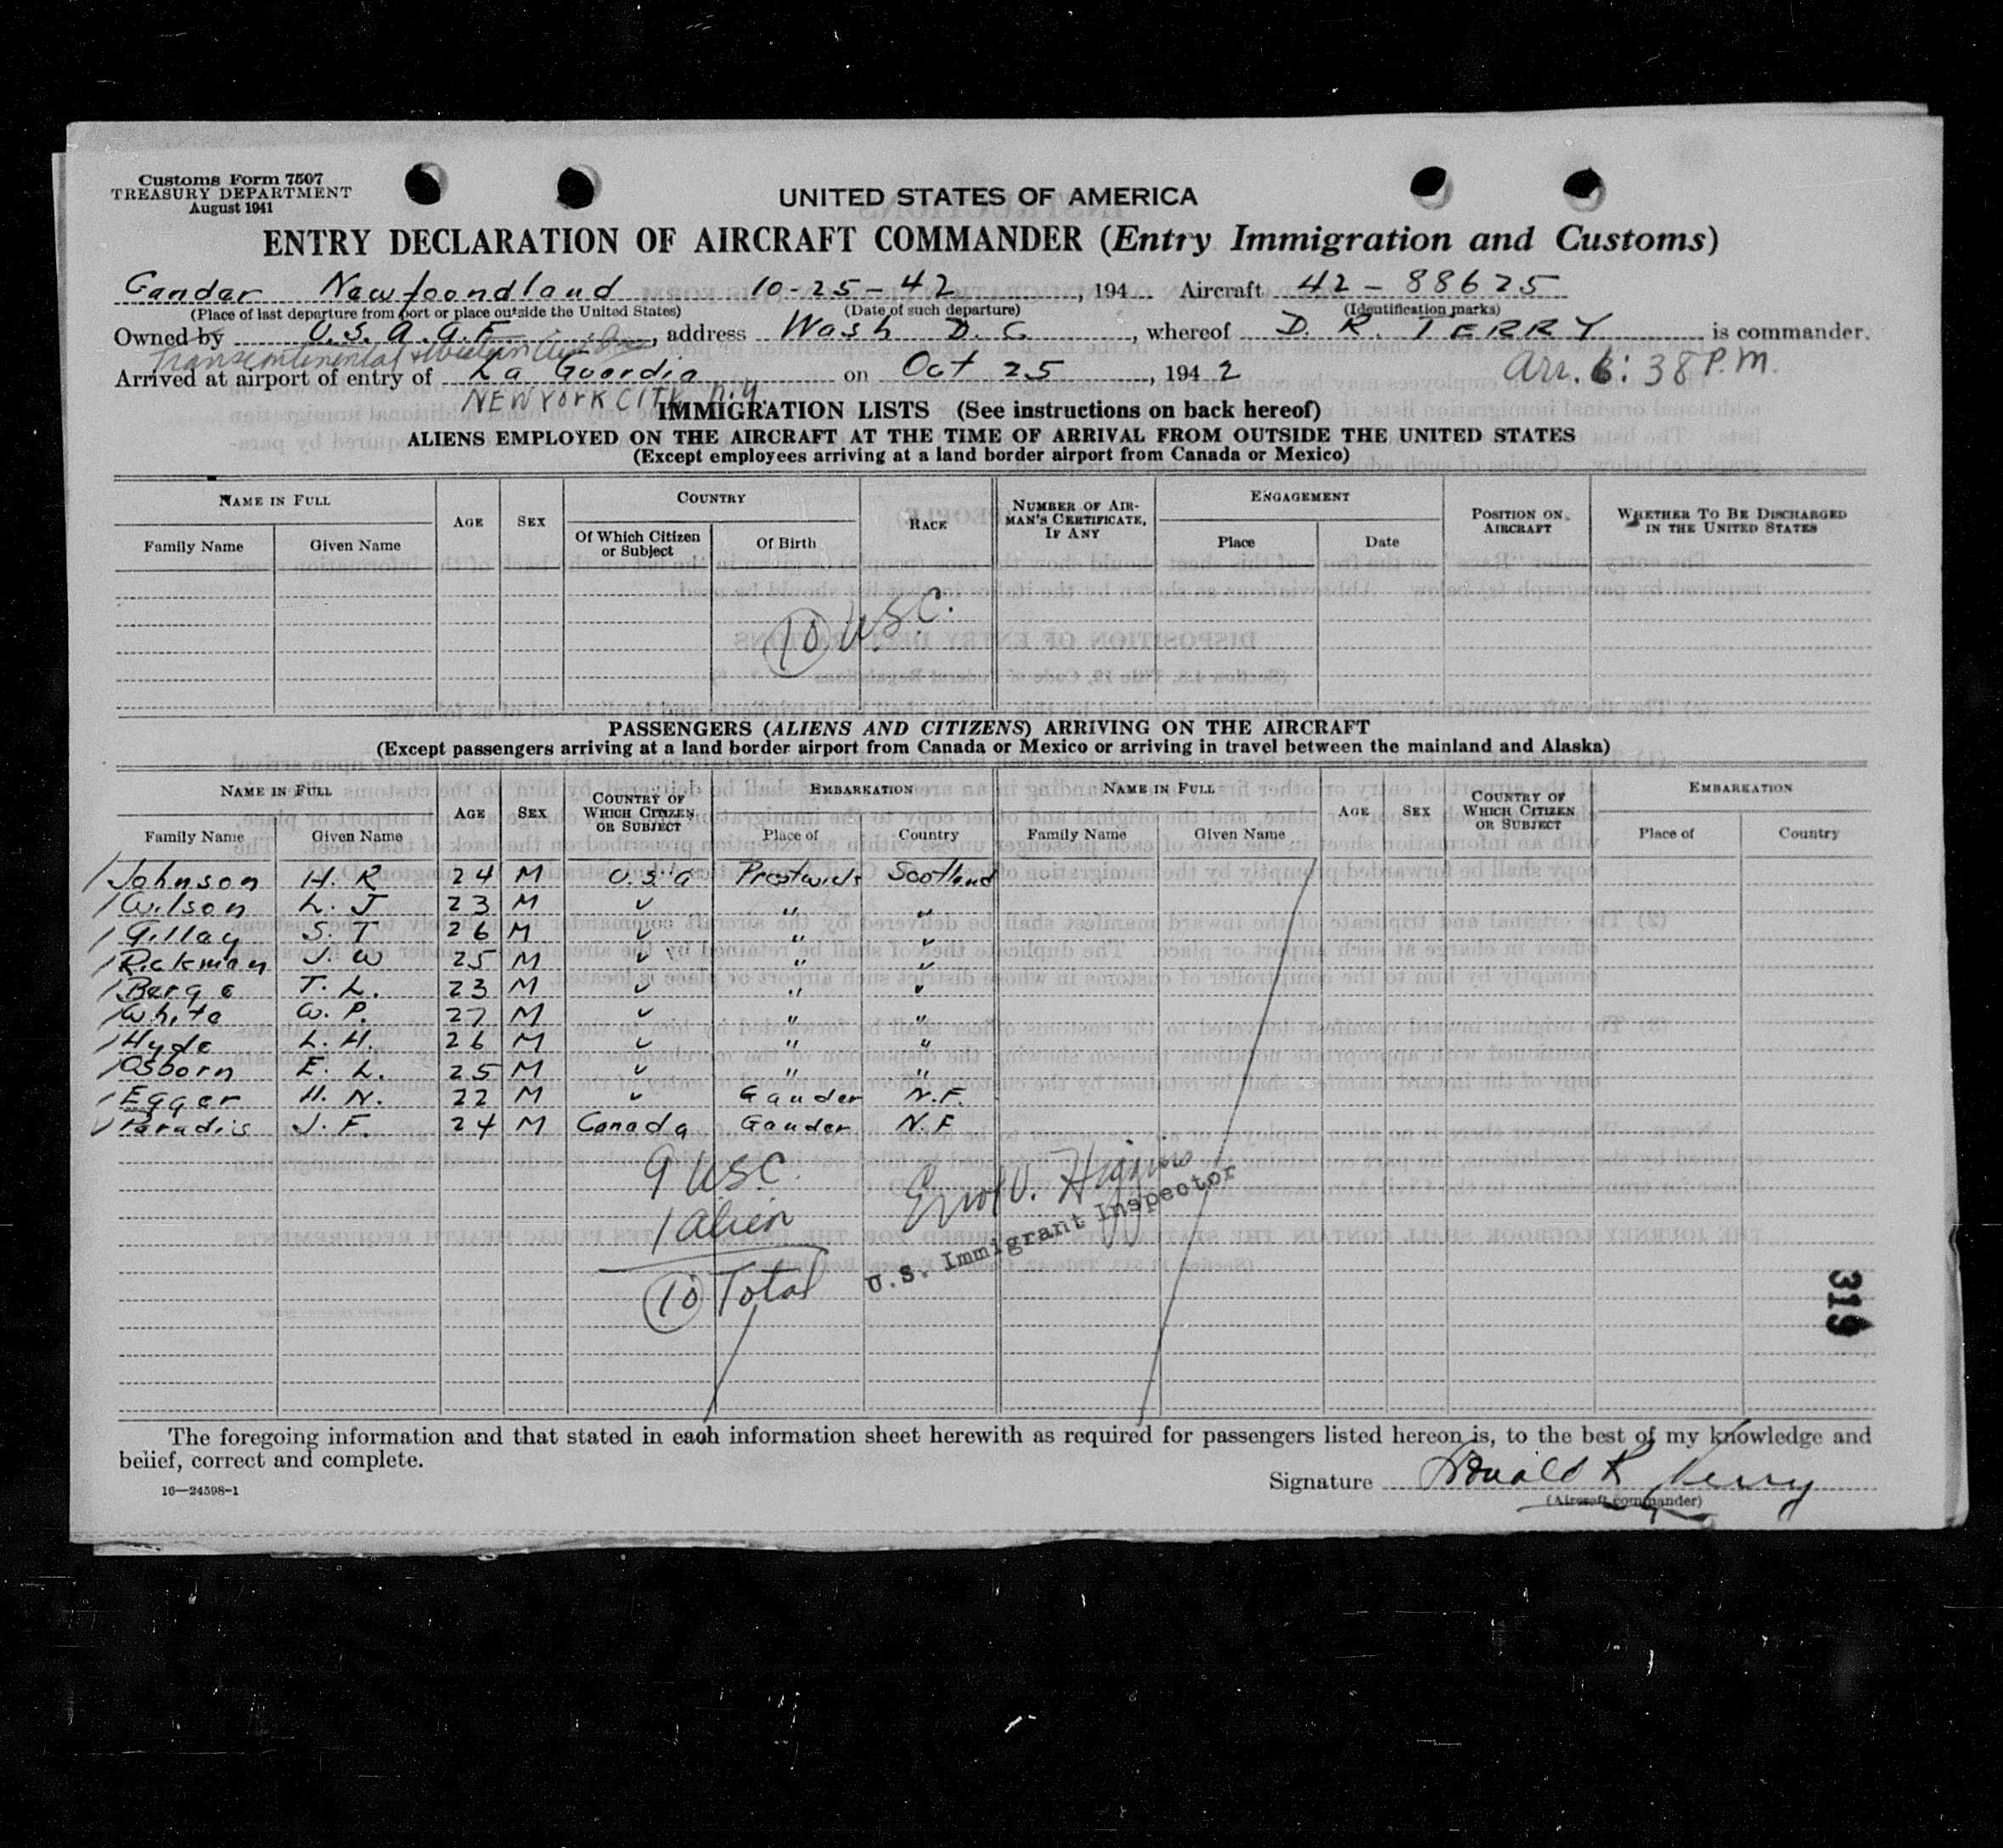 Customs Form 7507
TREASURY DEPARTMENT
August 1941
UNITED STATES OF AMERICA
ENTRY DECLARATION OF AIRCRAFT COMMANDER (Entry Immigration and Customs)
Gander Newfoundland 10-25-42, 194 Aircraft 42-88625
(Place of last departure from port or place outside the United States) (Date of such departure) (Identification marks)
Owned by U.S.A.A.F., address Wash D.C., whereof D. R. TERRY is commander.
Transcontinental & Western Air
Arrived at airport of entry of La Guardia on Oct 25, 1942 Arr. 6:38 P.M.
NEW YORK CITY N.Y.
IMMIGRATION LISTS (See instructions on back hereof)
ALIENS EMPLOYED ON THE AIRCRAFT AT THE TIME OF ARRIVAL FROM OUTSIDE THE UNITED STATES
(Except employees arriving at a land border airport from Canada or Mexico)
NAME IN FULL AGE SEX COUNTRY RACE NUMBER OF AIRMAN'S CERTIFICATE, IF ANY ENGAGEMENT POSITION ON AIRCRAFT WHETHER TO BE DISCHARGED IN THE UNITED STATES
Family Name Given Name Of Which Citizen or Subject Of Birth Place Date
10 USC.
PASSENGERS (ALIENS AND CITIZENS) ARRIVING ON THE AIRCRAFT
(Except passengers arriving at a land border airport from Canada or Mexico or arriving in travel between the mainland and Alaska)
NAME IN FULL AGE SEX COUNTRY OF WHICH CITIZEN OR SUBJECT EMBARKATION NAME IN FULL AGE SEX COUNTRY OF WHICH CITIZEN OR SUBJECT EMBARKATION
Family Name Given Name Place of Country Family Name Given Name Place of Country
Johnson H. R 24 M U.S.A Prestwick Scotland
Wilson L. J 23 M " " "
Gillay S. T 26 M " " "
Rickman J. W 25 M " " "
Berge T. L. 23 M " " "
White W. P. 27 M " " "
Hyde L. H. 26 M " " "
Osborn E. L. 25 M " " "
Egger H. N. 22 M " Gander N.F.
Paradis J. F. 24 M Canada Gander N.F
9 USC.
1 alien
10 Total
Errol V. Higgins
U.S. Immigrant Inspector
319
The foregoing information and that stated in each information sheet herewith as required for passengers listed hereon is, to the best of my knowledge and
belief, correct and complete.
Signature Donald R Terry
(Aircraft commander)
16—24598-1